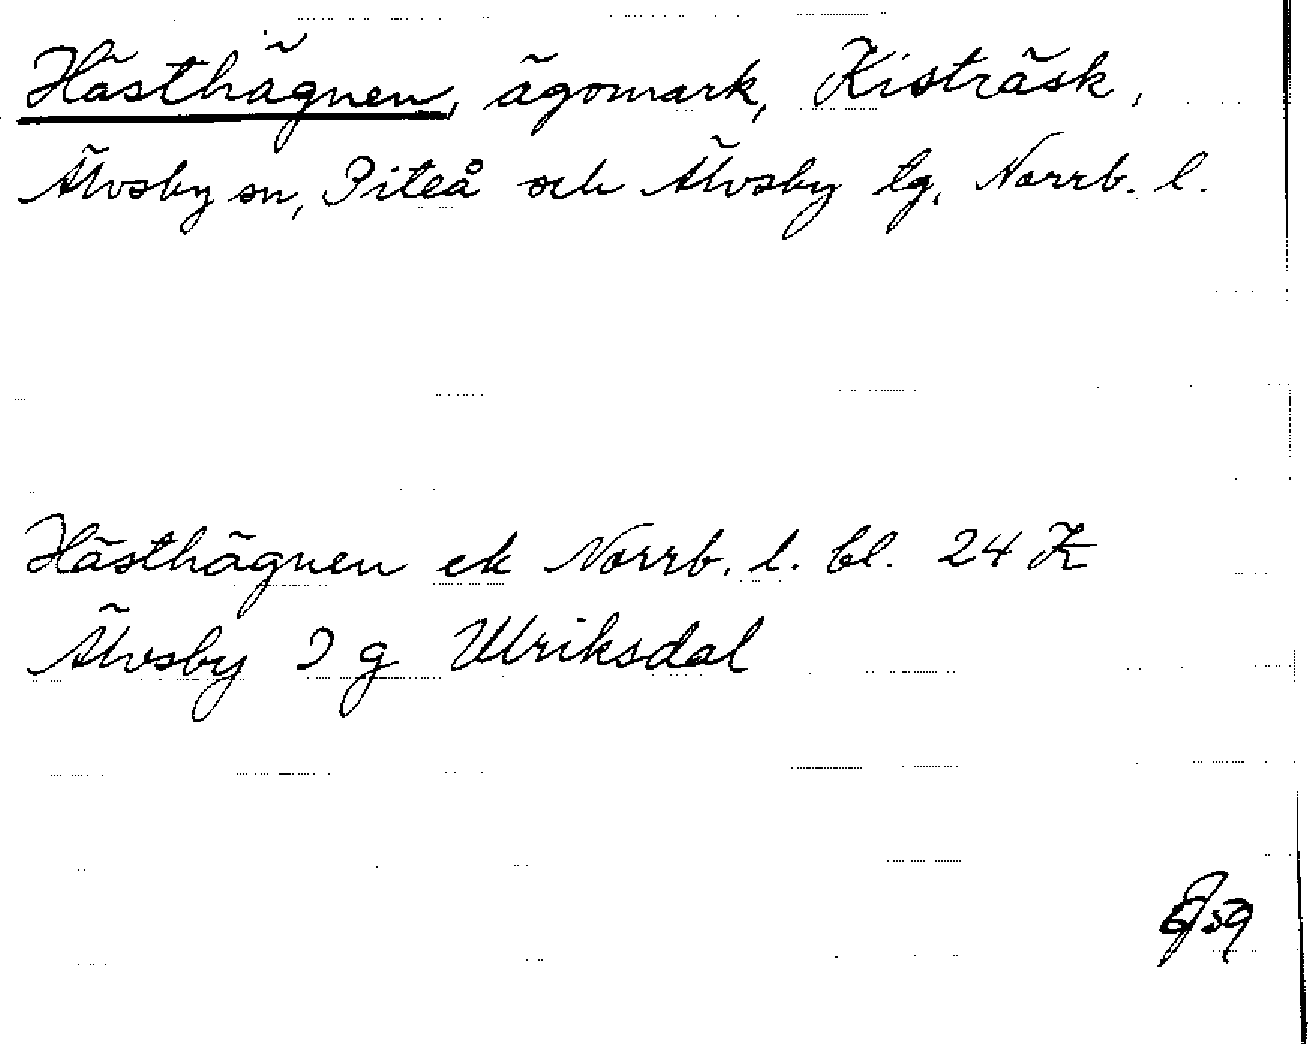 Hästhägnen, ägomark, Kisträsk,
Älvsby sn, Piteå och Älvsby tg, Norrb. l.
Hästhägnen ek Norrb. l. bl. 24 K
Älvsby 2 g Ulriksdal